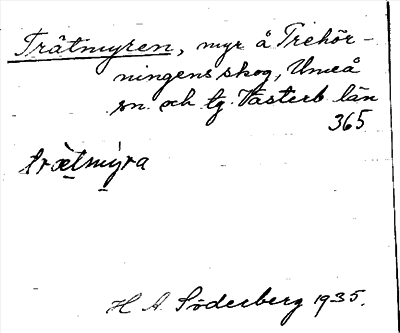 Tråtmyren, myr å Trehör-
ningens skog, Umeå
sn. och tg. Västerb. län
365
trætmýra
H. A. Söderberg 1935.